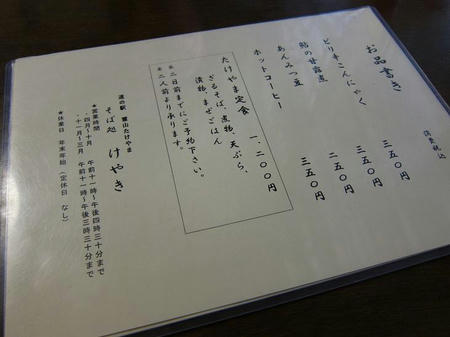 お品書き
消費税込
ピリ辛こんにゃく 二五〇円
鮎の甘露煮 三五〇円
あんみつ豆 三五〇円
ホットコーヒー 三五〇円
たけやま定食 一、二〇〇円
ざるそば、煮物、天ぷら、
漬物、まぜごはん
※二日前までにご予約下さい。
※二人前より承ります。
道の駅 霊山たけやま
そば処 けやき
★営業時間
・四月〜十月 午前十一時〜午後四時三十分まで
・十一月〜三月 午前十一時〜午後三時三十分まで
★休業日 年末年始(定休日 なし)